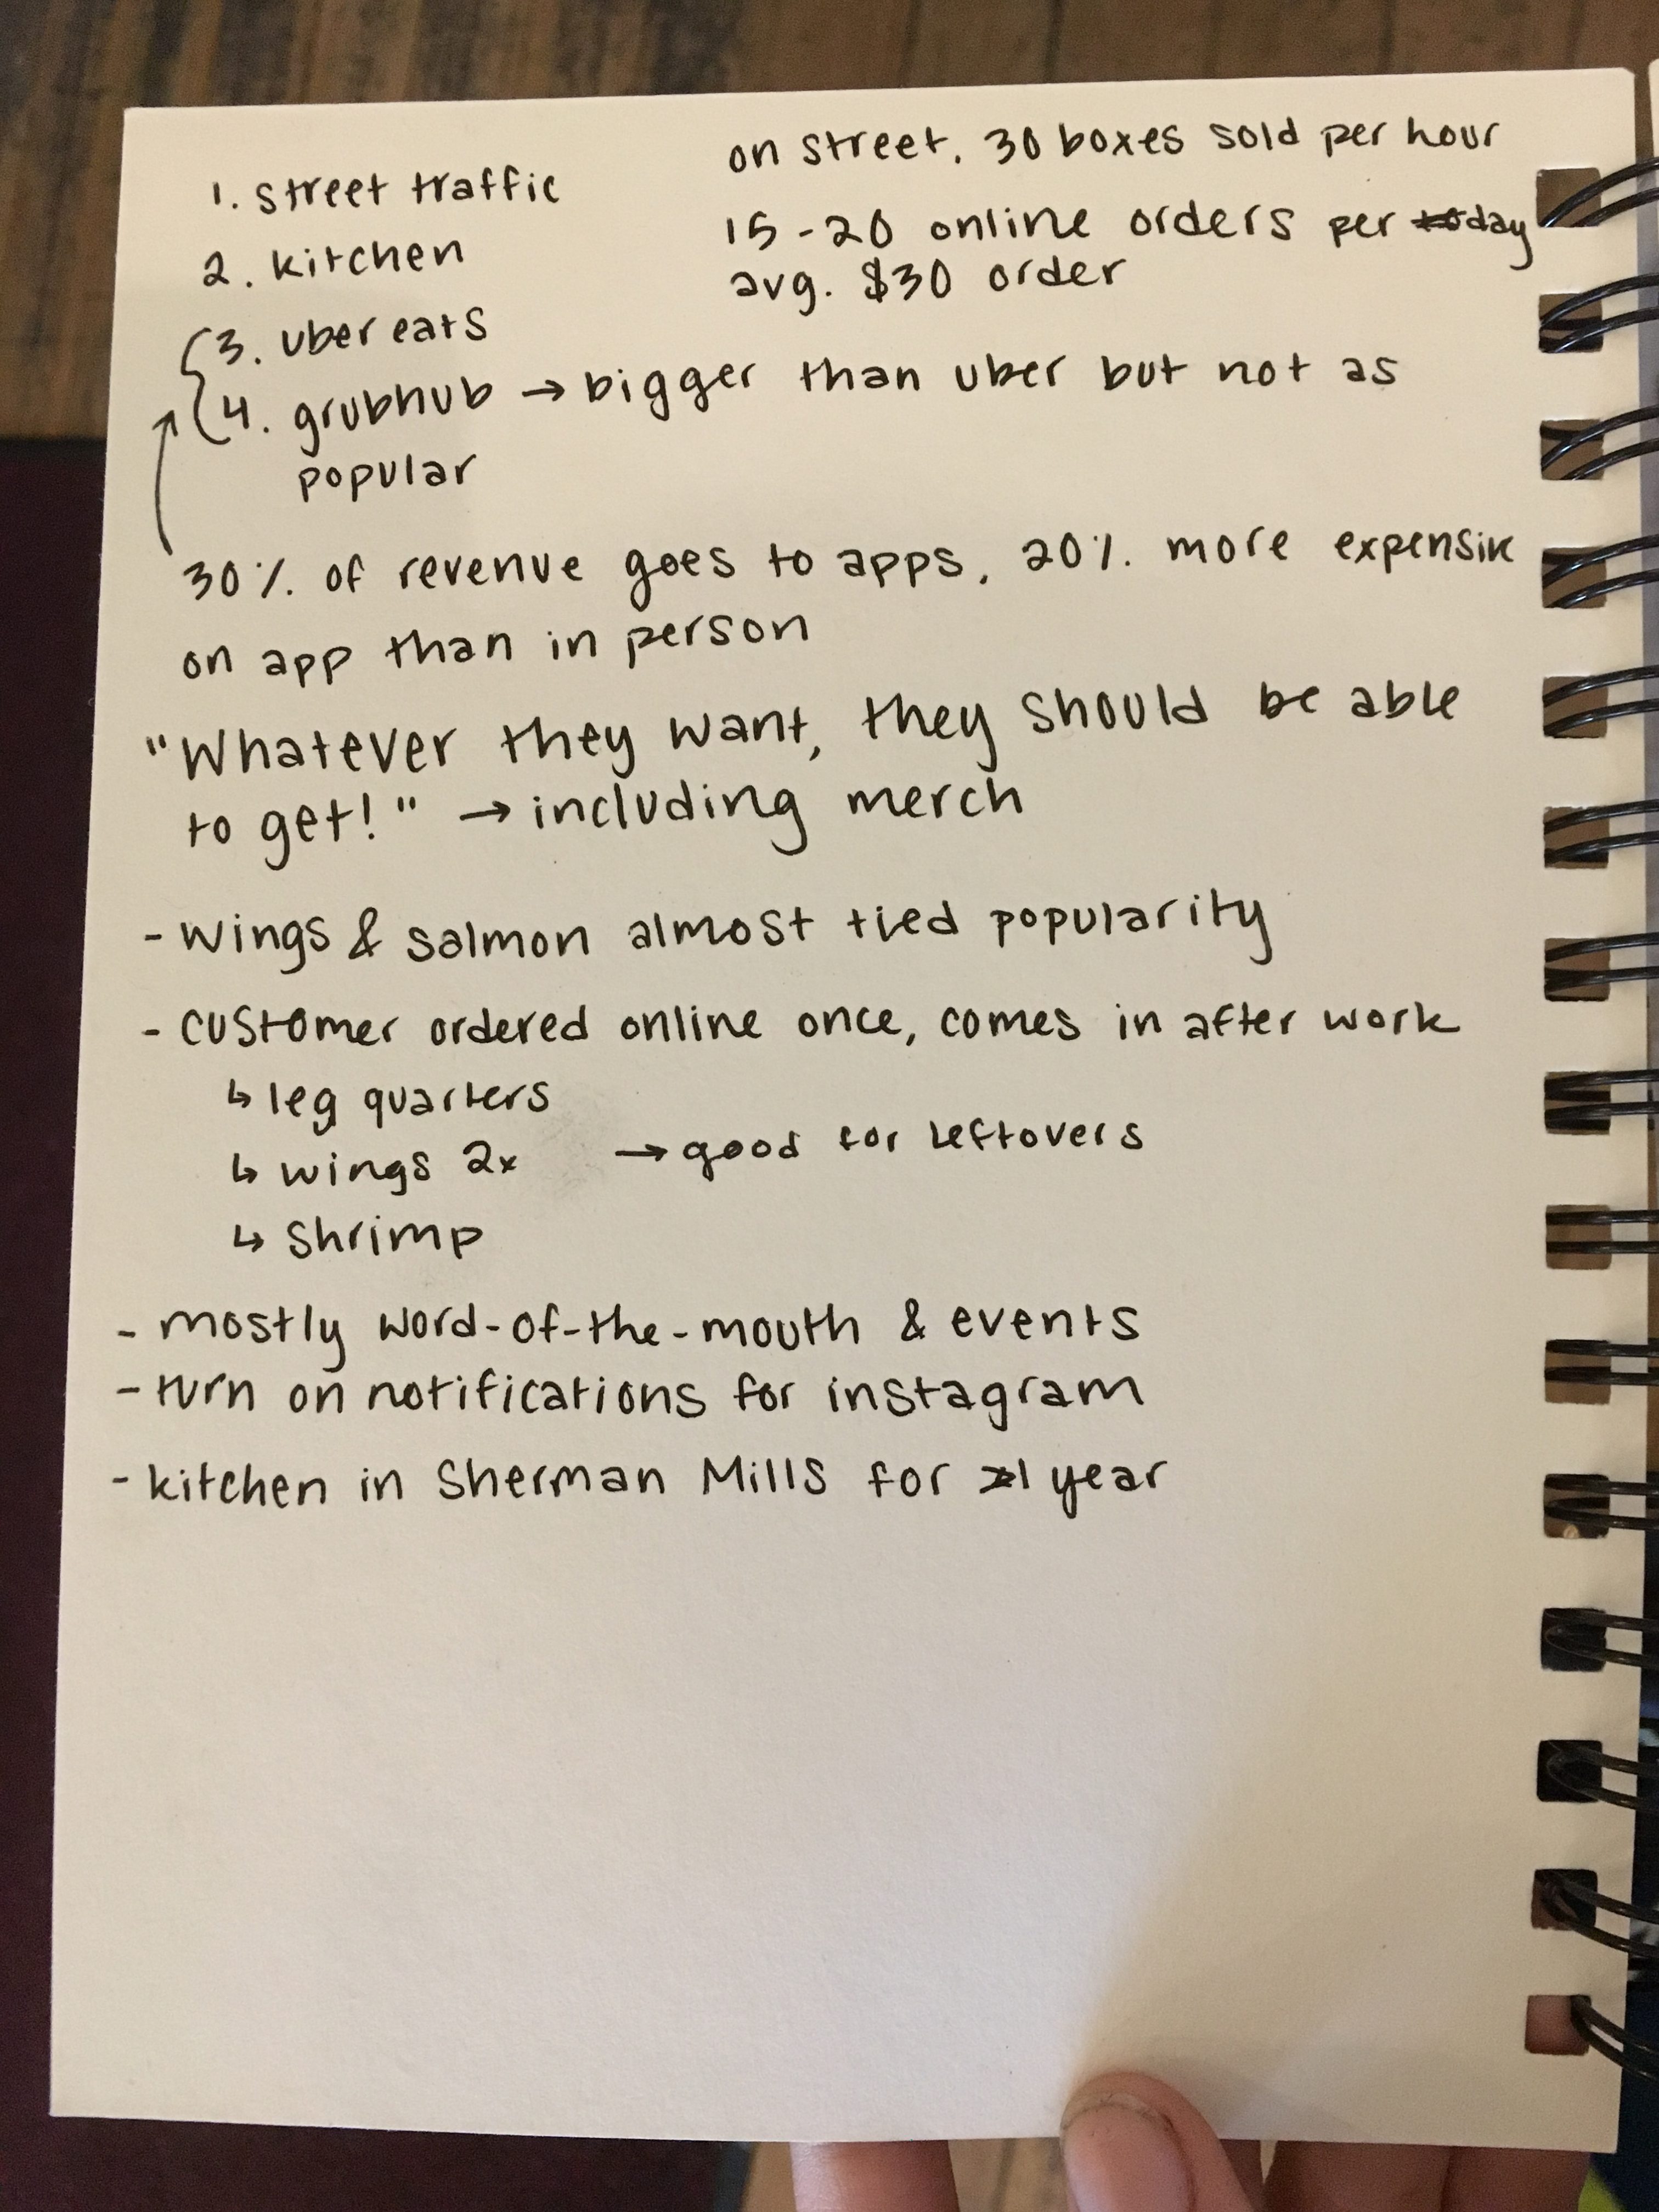 on street, 30 boxes sold per hour
1. street traffic
15-20 online orders per day
2. kitchen
avg. $30 order
3. uber eats
4. grubhub → bigger than uber but not as
popular
30% of revenue goes to apps, 20% more expensive
on app than in person
"Whatever they want, they should be able
to get!" → including merch
- wings & salmon almost tied popularity
- customer ordered online once, comes in after work
↳ leg quarters
↳ wings 2x → good for leftovers
↳ shrimp
- mostly word-of-the-mouth & events
- turn on notifications for instagram
- kitchen in Sherman Mills for 1 year